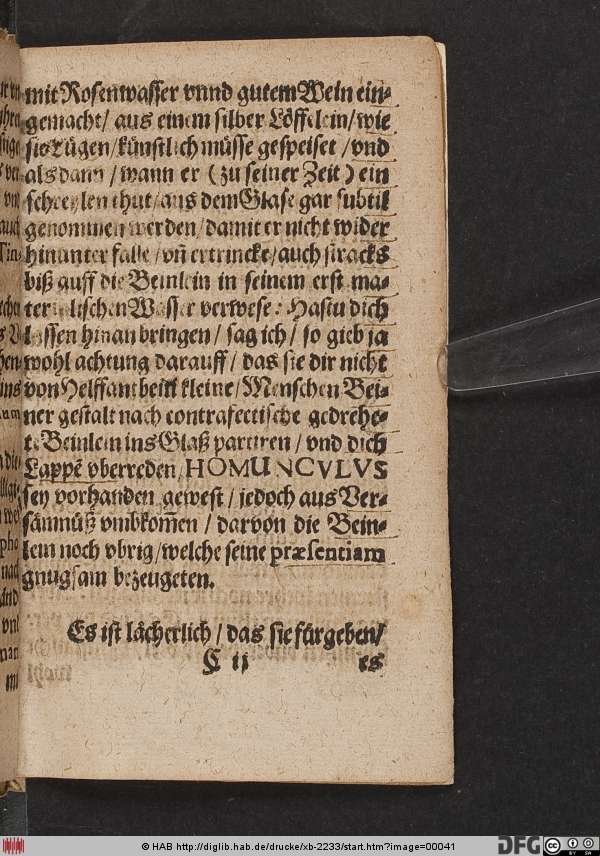 mit Rosenwasser vnnd gutem Wein ein-
gemacht / aus einem silber Löffelein / wie
sie Lügen / künstlich müsse gespeiset / vnd
als dann / wann er (zu seiner Zeit) ein
schreylen thut / aus dem Glase gar subtil
genommen werden / damit er nicht wider
hinunter falle / vñ ertrincke / auch stracks
biß auff die Beinlein in seinem erst ma-
terialischen Wasser verwese: Hastu dich
lassen hinan bringen / sag ich / so gieb ja
wohl achtung darauff / das sie dir nicht
von Helffantbein kleine / Menschen Bei-
ner gestalt nach contrafectische gedrehe-
te Beinlein ins Glaß partiren / vnd dich
Lappẽ vberreden / HOMUNCVLVS
sey vorhanden gewest / jedoch aus Ver-
sämnüß vmbkom̃en / darvon die Bein-
lein noch vbrig / welche seine præsentiam
gnugsam bezeugeten.
Es ist lächerlich / das sie fürgeben /
C ij es
© HAB http://diglib.hab.de/drucke/xb-2233/start.htm?image=00041
DFG
cc BY SA